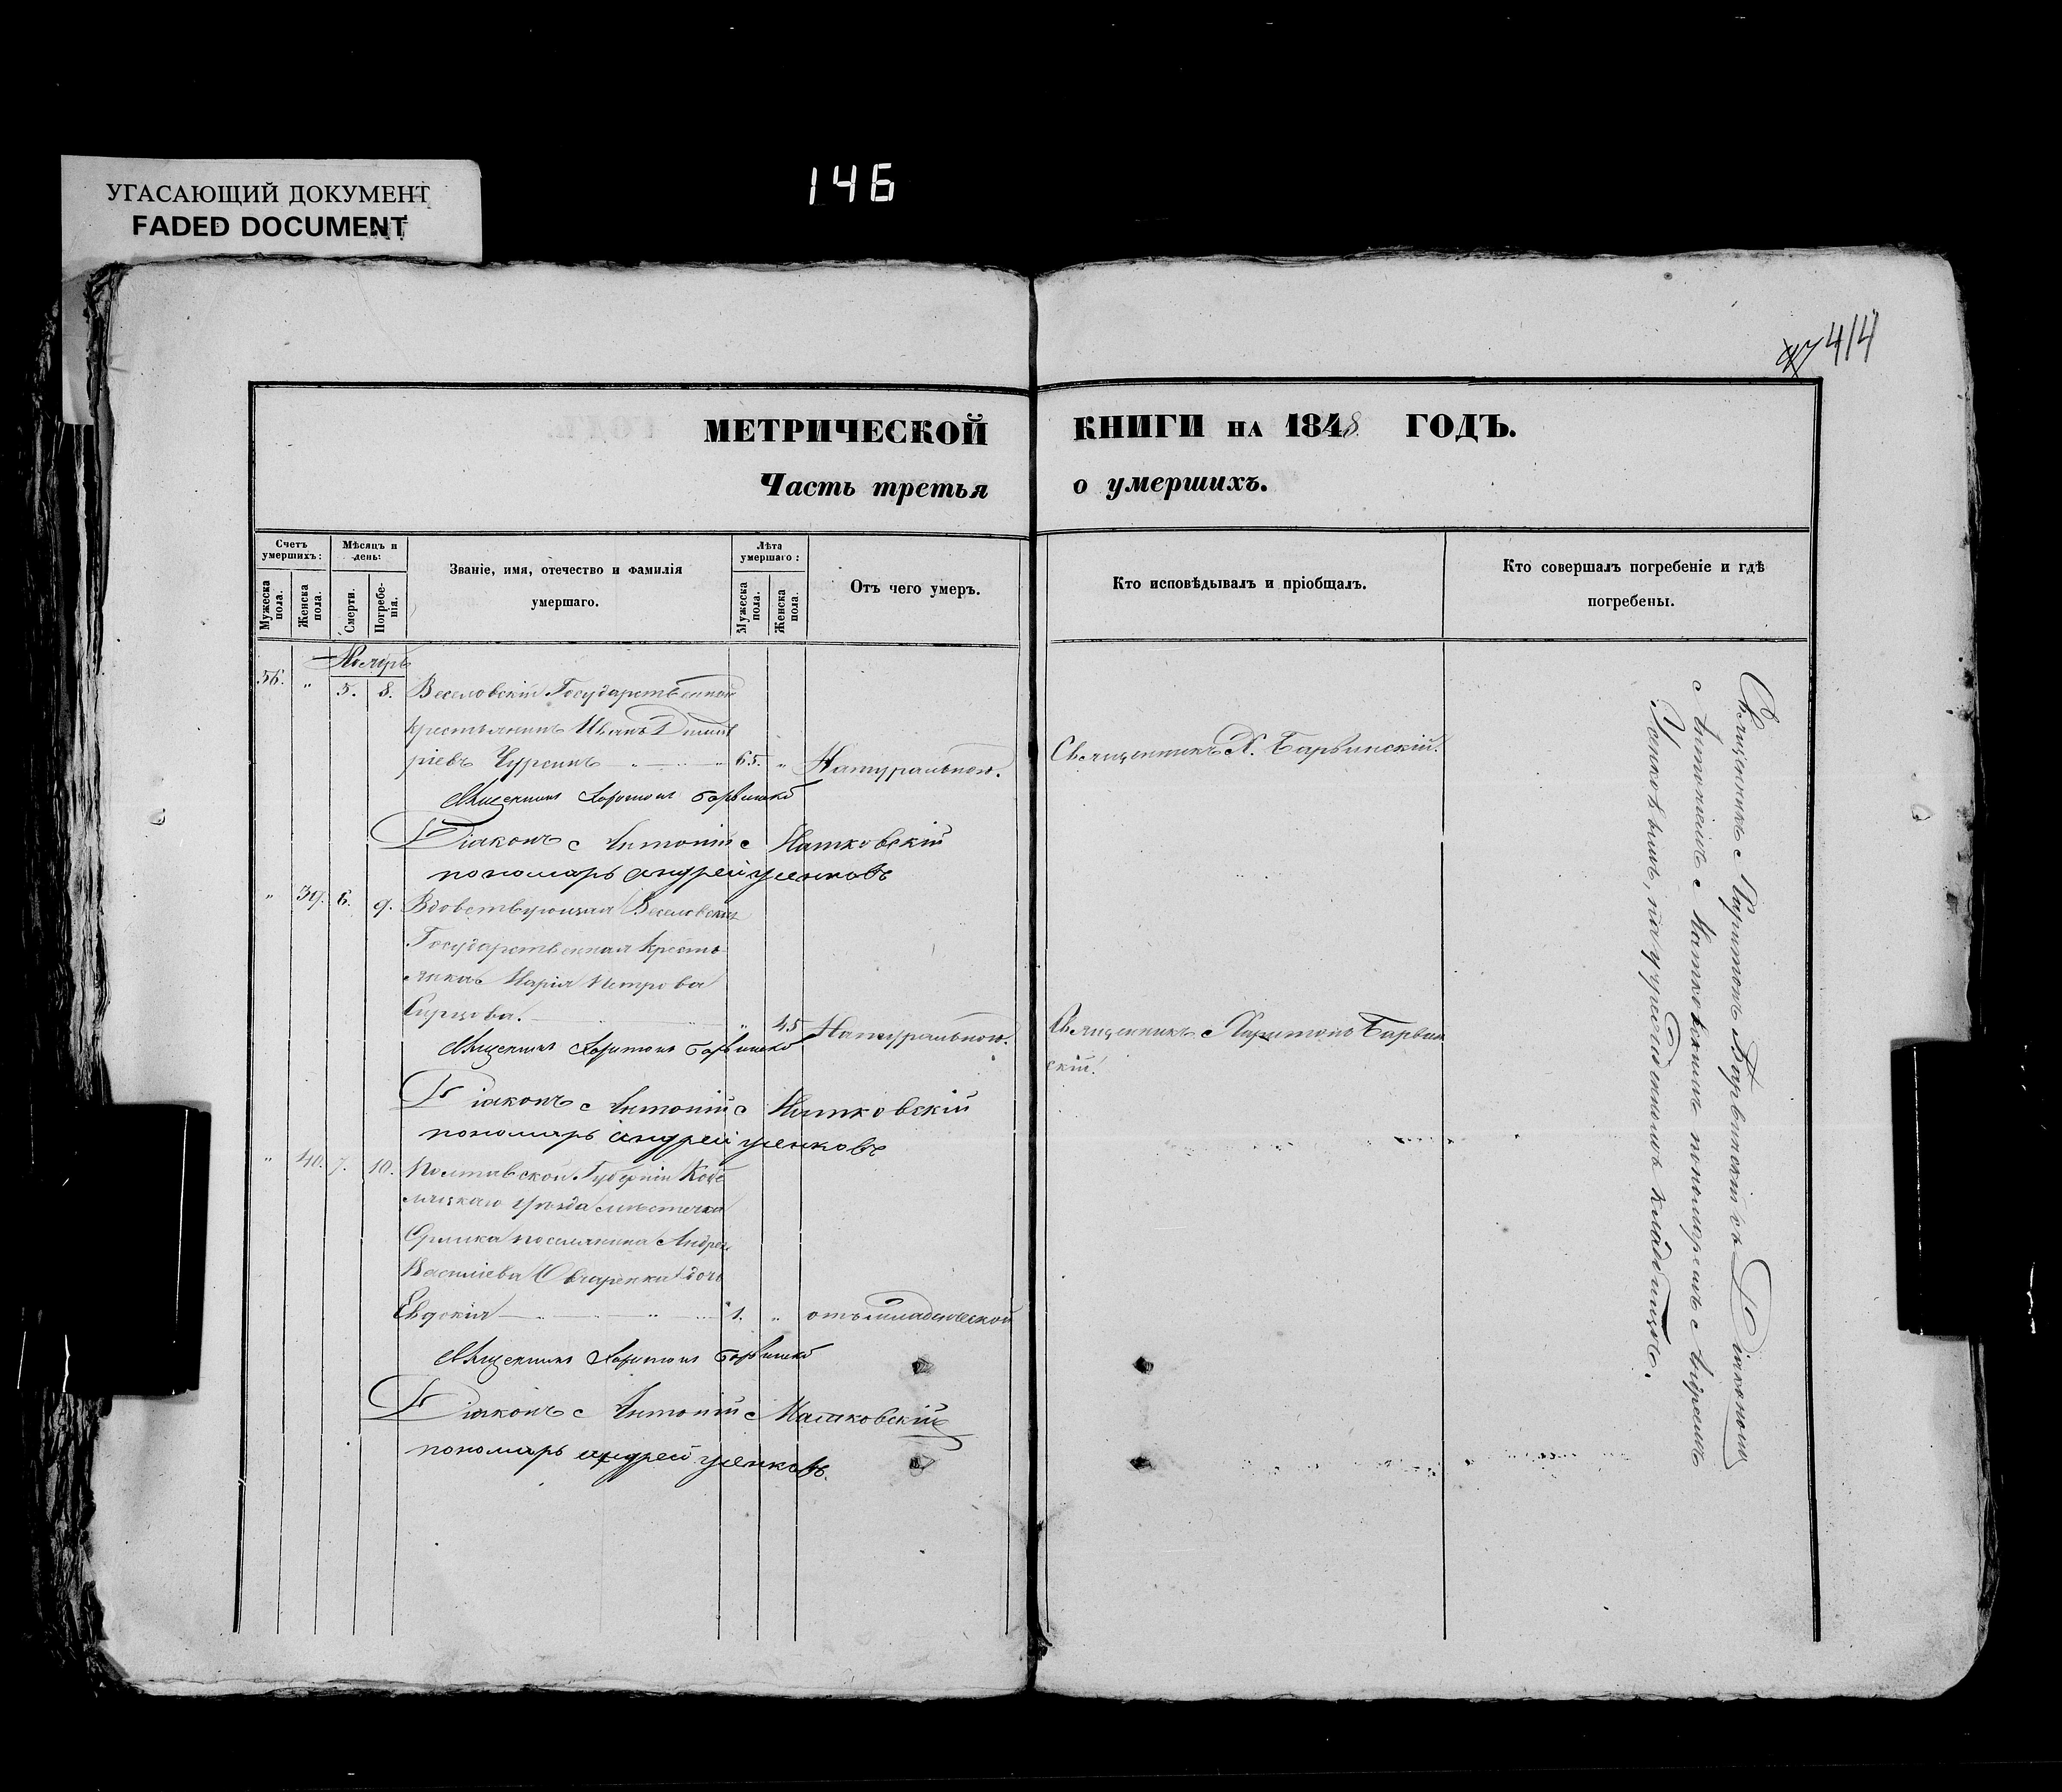 УГАСАЮЩИЙ ДОКУМЕНТ
FADED DOCUMENT
146
414
МЕТРИЧЕСКОЙ КНИГИ НА 1848 ГОДЪ.
Часть третья о умершихъ.
Счетъ умершихъ:
Мужеска пола.
Женска пола.
Мѣсяцъ и день:
Смерти.
Погребе-
нія.
Званіе, имя, отечество и фамилія
умершаго.
Лѣта умершаго:
Мужеска пола.
Женска пола.
Отъ чего умеръ.
Кто исповѣдывалъ и пріобщалъ.
Кто совершалъ погребеніе и гдѣ
погребены.
56. „ 5. 8. Веселовскій Государственный
крестьянинъ Иванъ Димит
ріевъ Чурсинъ 65. „ Натуральною. Священникъ Х. Барвинскій.
Священникъ Харитонъ Барвинскій
Діаконъ Антоній Матковскій
пономарь Андрей
„ 39. 6. 9. Вдовствующая Веселовская
Государственная кресть
янка Марія Петрова
„ 45 Натуральною. Священникъ Харитонъ Барвин
скій.
Священникъ Харитонъ Барвинскій
Діаконъ Антоній Матковскій
пономарь Андрей
„ 40. 7. 10. Полтавской Губерніи Кобе
ляцкаго уѣзда мѣстечка
поселянина Андрея
Васильева Овчаренка дочь
Евдокія 1. „ отъ младенческой
Священникъ Харитонъ Барвинскій
Діаконъ Антоній Матковскій
пономарь Андрей
Священникъ Харитонъ Барвинскій съ Діакономъ
Антоніемъ Матковскимъ пономаремъ Андреемъ
на учрежденномъ кладбищѣ.